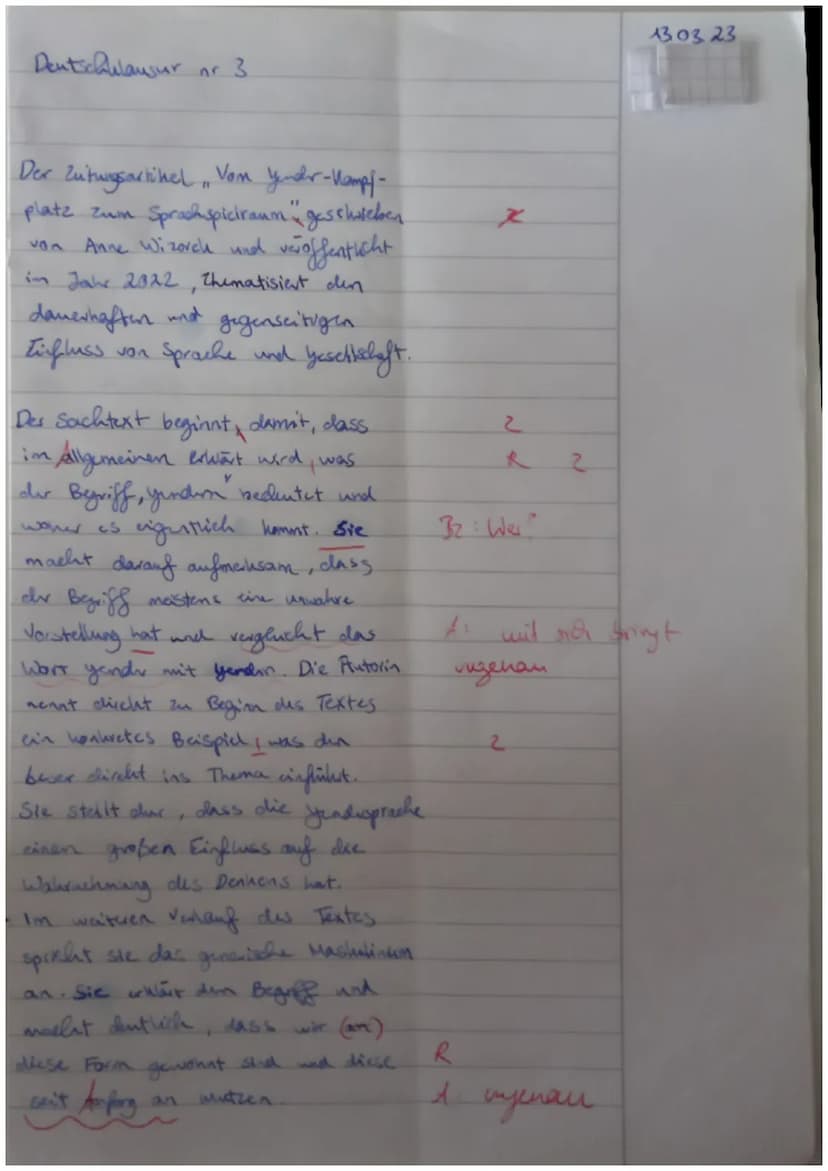 13.03.23
Deutschklausur nr 3
Der Zeitungsartikel „Vom Gender-Kampf-
platz zum Sprachspielraum", geschrieben
von Anne Wizorek und veröffentlicht
im Jahr 2022, thematisiert den
dauerhaften und gegenseitigen
Einfluss von Sprache und Gesellschaft.
Der Sachtext beginnt, damit, dass Z
im Allgemeinen erklärt wird, was R Z
der Begriff „gendern" bedeutet und
woher es eigentlich kommt. Sie Bz: Wer?
macht darauf aufmerksam, dass
der Begriff meistens eine unwahre
Vorstellung hat und vergleicht das A: mit sich bringt
Wort gender mit gendern. Die Autorin ungenau
nennt direkt zu Beginn des Textes
ein konkretes Beispiel, was den Z
Leser direkt ins Thema einführt.
Sie stellt dar, dass die Gendersprache
einen großen Einfluss auf die
Wahrnehmung des Denkens hat.
Im weiteren Verlauf des Textes
spricht sie das generische Maskulinum
an. Sie erklärt den Begriff und
macht deutlich, dass wir (an)
diese Form gewohnt sind und diese R
seit Anfang an nutzen. A: ungenau